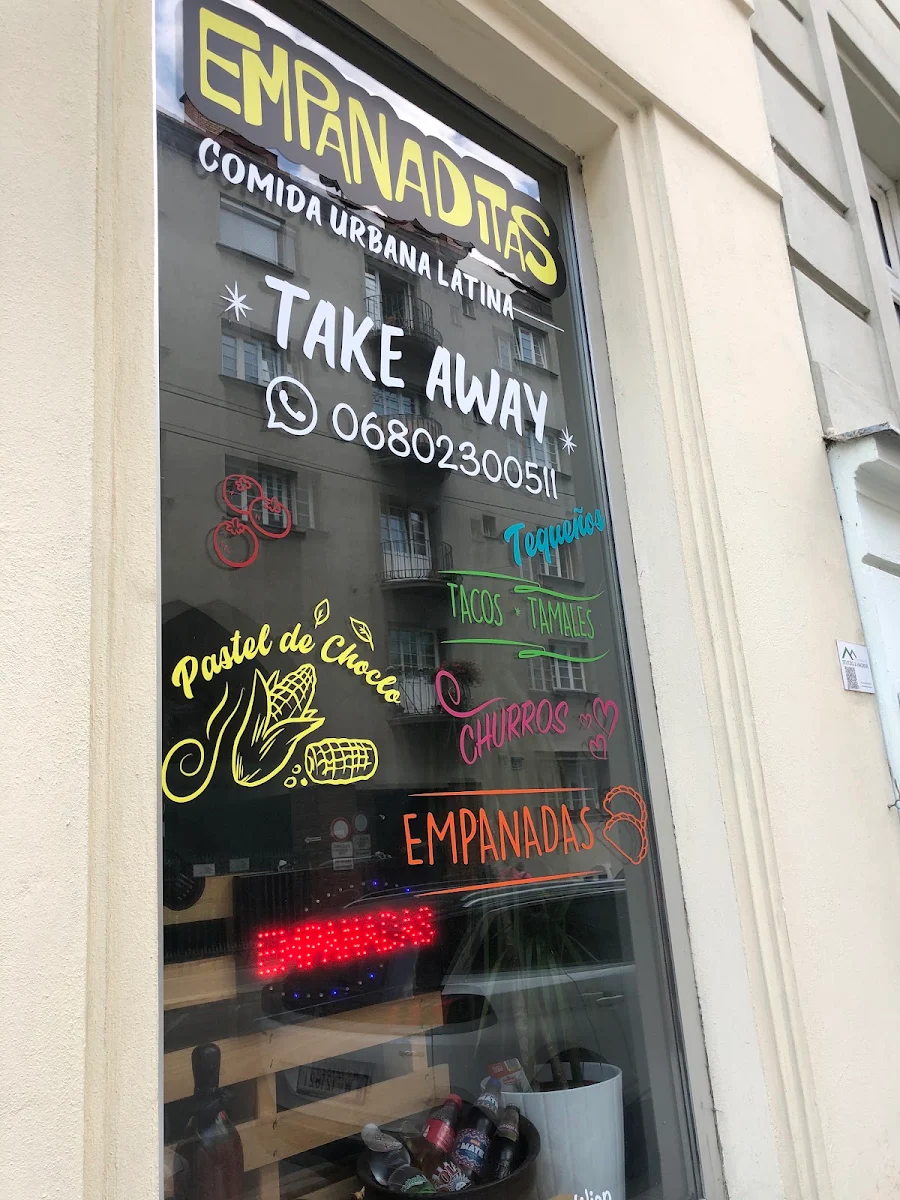 EMPANADITAS
COMIDA URBANA LATINA
TAKE AWAY
06802300511
Tequeños
TACOS · TAMALES
Pastel de Choclo
CHURROS
EMPANADAS
EMPANADAS
MATE